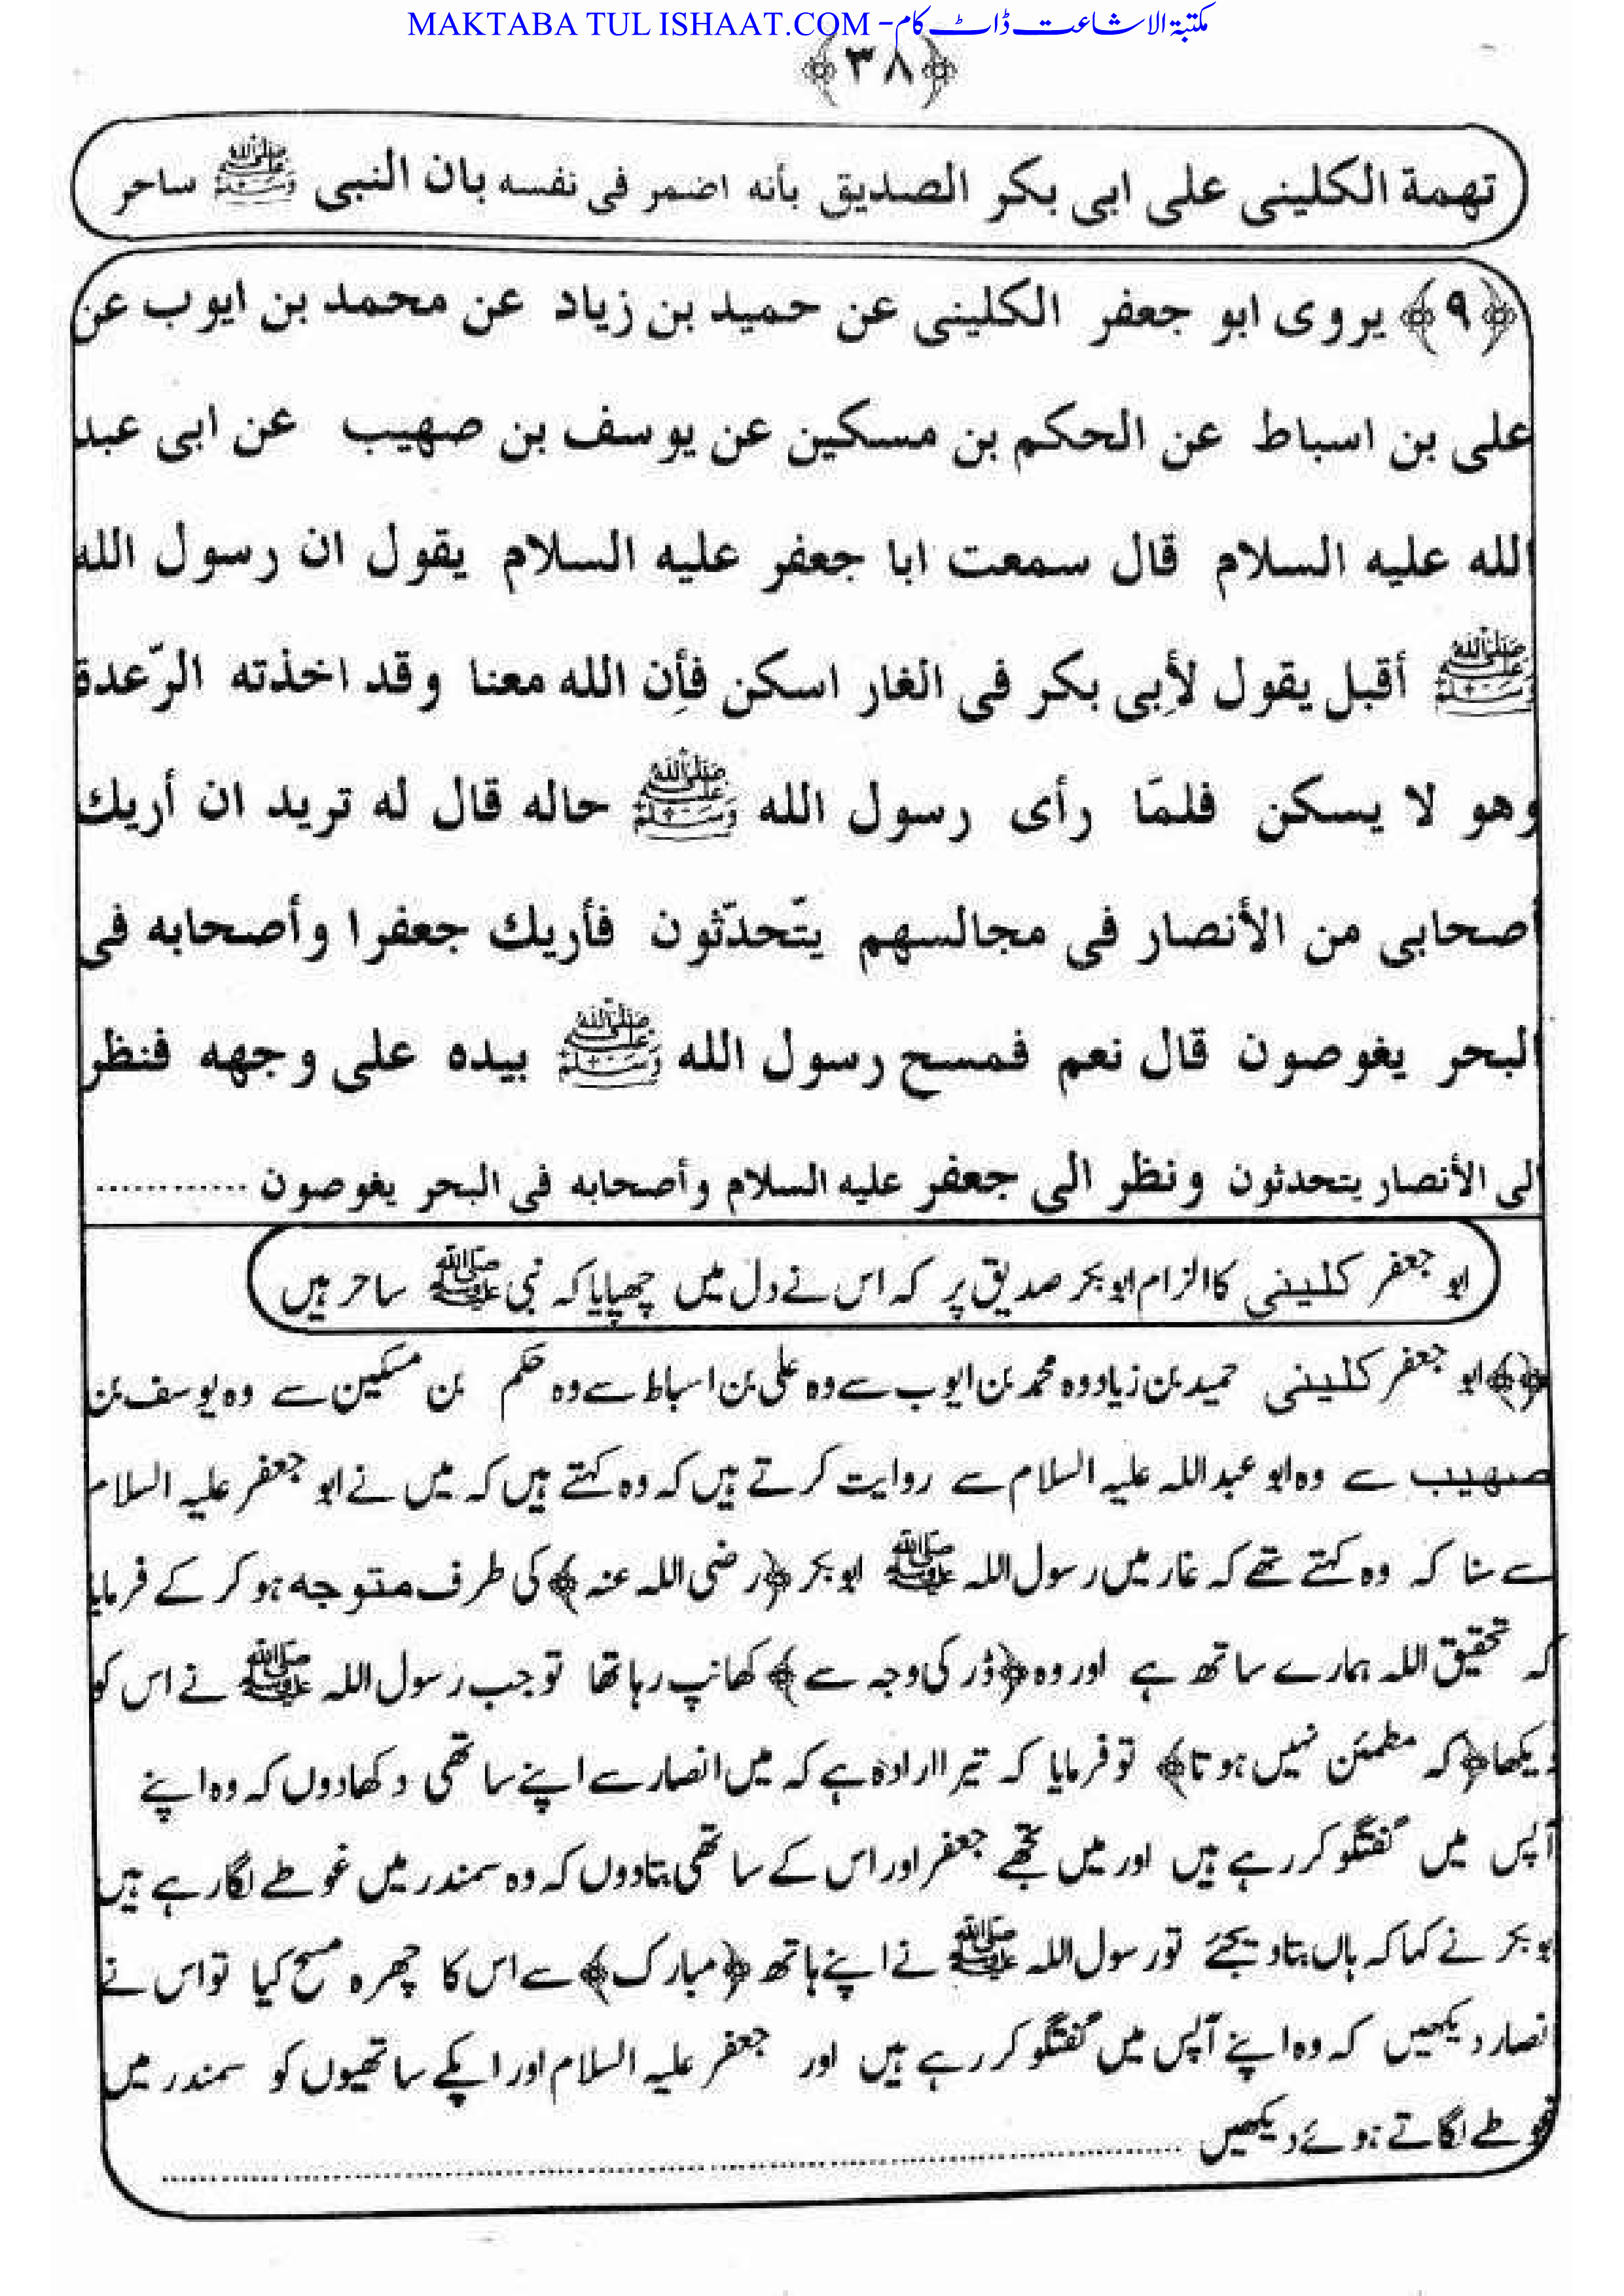 MAKTABA TUL ISHAAT.COM - مکتبۃ الاشاعت ڈاٹ کام
﴿٣٨﴾
تهمة الكلينى على ابى بكر الصديق بأنه اضمر فى نفسه بان النبى ﷺ ساحر
﴿٩﴾ يروى ابو جعفر الكلينى عن حميد بن زياد عن محمد بن ايوب عن
على بن اسباط عن الحكم بن مسكين عن يوسف بن صهيب عن ابى عبد
الله عليه السلام قال سمعت ابا جعفر عليه السلام يقول ان رسول الله
ﷺ أقبل يقول لأبِى بكر فى الغار اسكن فأِن الله معنا وقد اخذته الرّعدة
وهو لا يسكن فلمّا رأى رسول الله ﷺ حاله قال له تريد ان أريك
أصحابى من الأنصار فى مجالسهم يتّحدّثون فأريك جعفرا وأصحابه فى
البحر يغوصون قال نعم فمسح رسول الله ﷺ بيده على وجهه فنظر
الى الأنصار يتحدثون ونظر الى جعفر عليه السلام وأصحابه فى البحر يغوصون ............
ابو جعفر کلینی کا الزام ابو بکر صدیق پر کہ اس نے دل میں چھپایا کہ نبی ﷺ ساحر ہیں
﴿﴾ ابو جعفر کلینی حمید بن زیاد وہ محمد بن ایوب سے وہ علی بن اسباط سے وہ حکم بن مسکین سے وہ یوسف بن
صہیب سے وہ ابو عبد اللہ علیہ السلام سے روایت کرتے ہیں کہ وہ کہتے ہیں کہ میں نے ابو جعفر علیہ السلام
سے سنا کہ وہ کہتے تھے کہ غار میں رسول اللہ ﷺ ابو بکر ﴿رضی اللہ عنہ﴾ کی طرف متوجہ ہو کر کے فرمایا
کہ تحقیق اللہ ہمارے ساتھ ہے اور وہ ﴿ڈر کی وجہ سے﴾ کھانپ رہا تھا تو جب رسول اللہ ﷺ نے اس کو
دیکھا ﴿کہ مطمئن نہیں ہوتا﴾ تو فرمایا کہ تیرا ارادہ ہے کہ میں انصار سے اپنے ساتھی دکھادوں کہ وہ اپنے
آپس میں گفتگو کر رہے ہیں اور میں تجھے جعفر اور اس کے ساتھی بتادوں کہ وہ سمندر میں غوطے لگا رہے ہیں
ابو بکر نے کہا کہ ہاں بتادیجئے تو رسول اللہ ﷺ نے اپنے ہاتھ ﴿مبارک﴾ سے اس کا چہرہ مسح کیا تو اس نے
انصار دیکھیں کہ وہ اپنے آپس میں گفتگو کر رہے ہیں اور جعفر علیہ السلام اور اپکے ساتھیوں کو سمندر میں
غوطے لگاتے ہوئے دیکھیں ............